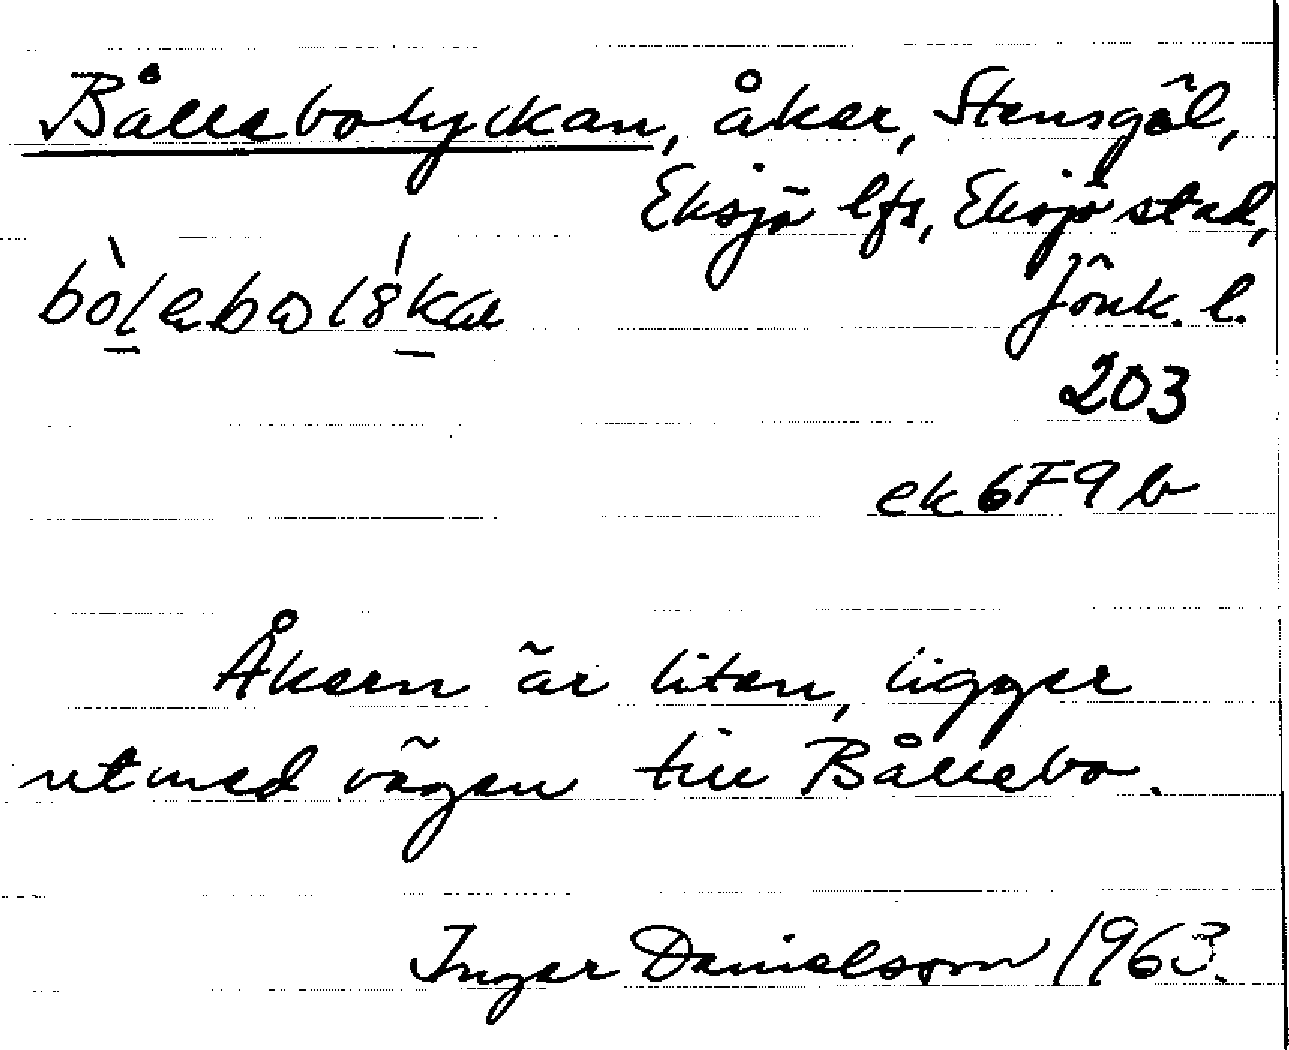 Bållebolyckan, åker, Stensgöl,
Eksjö lfs, Eksjö stad,
Jönk. l.
203
ek 6F9b
Åkern är liten, ligger
utmed vägen till Bållebo.
Inger Danielsson 1963.